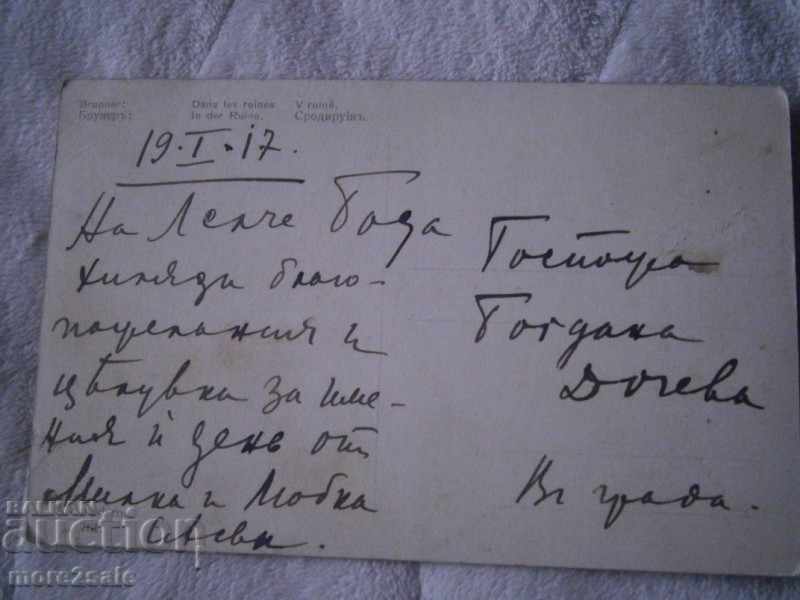 Brunner: Dans les ruines. V ruině.
Бруннръ: In der Ruine. Сродируинъ.
19.I.17.
На Ленче Года
хиляди благо-
пожелания и
цѣлувка за име-
ния ѝ день от
Милка и Любка
Госпожа
Богдана
Дочева
Въ града.
BALKAN
auction
more2sale